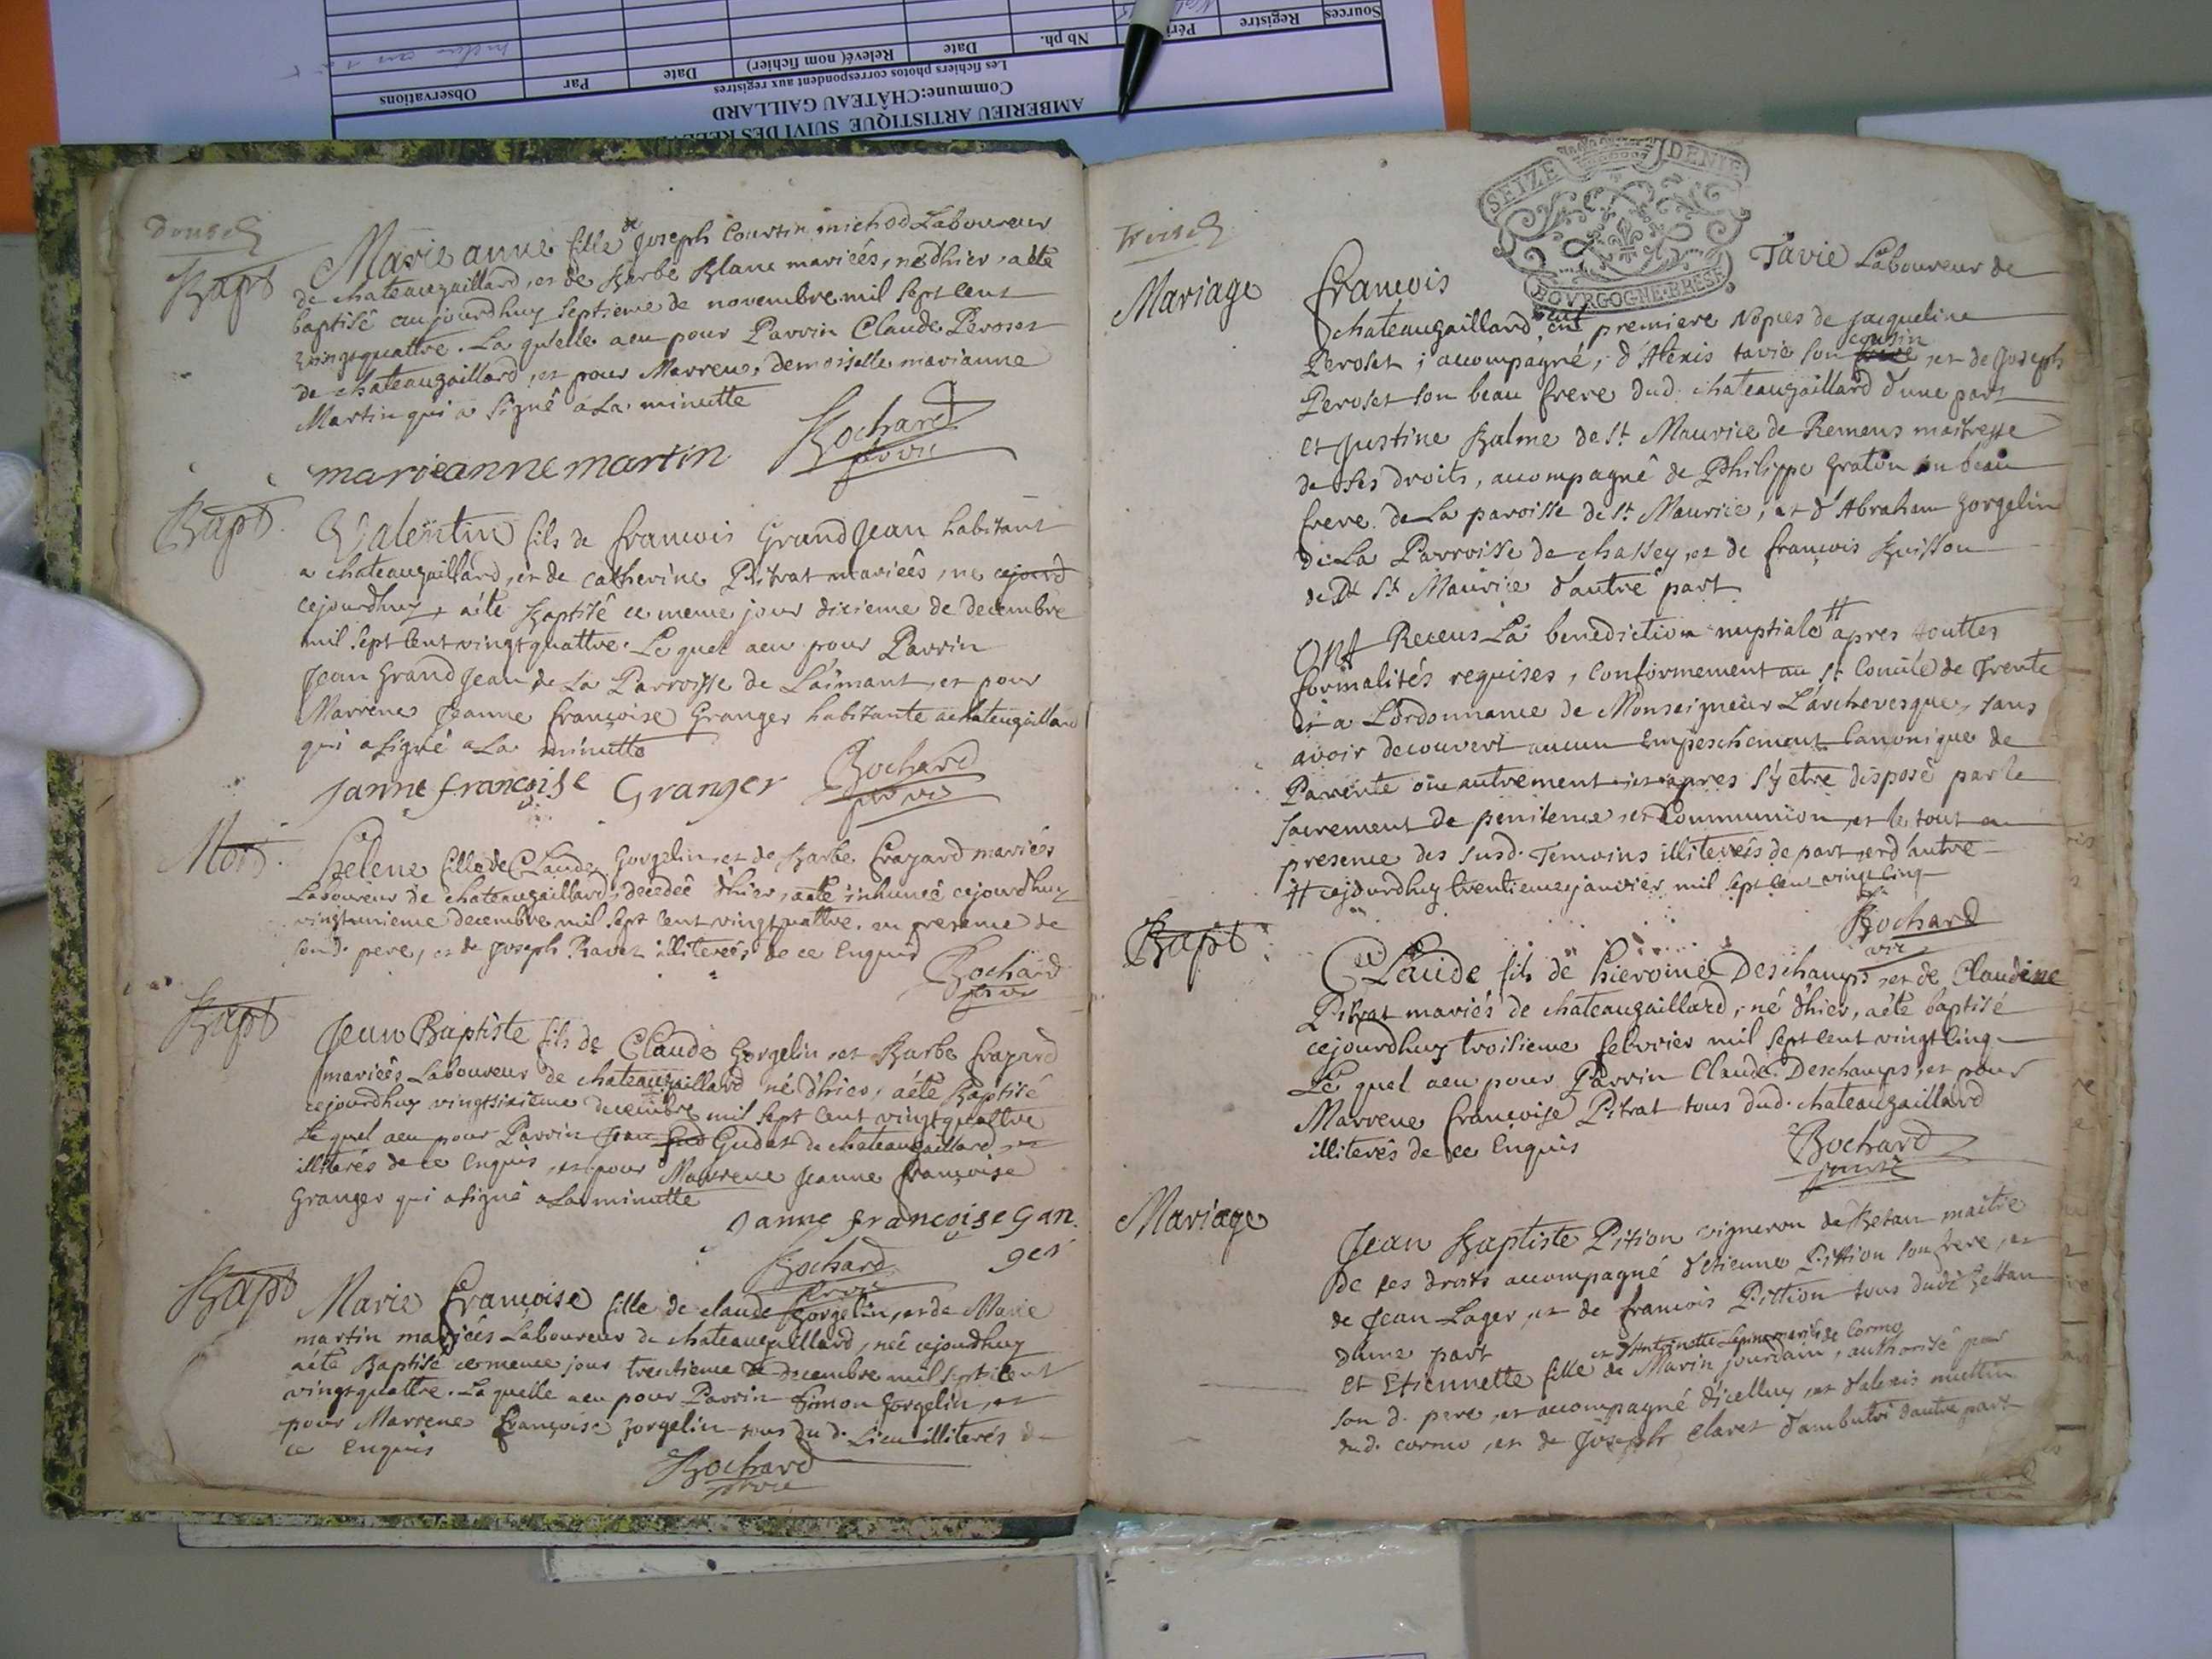 Sources
Registre
Péri
Nb ph.
Date
Relevé (nom fichier)
Date
Par
Observations
Les fichiers photos correspondent aux registres
Commune:CHÂTEAU GAILLARD
AMBERIEU ARTISTIQUE SUIVI DES RELE
Bapt
Marie anne fille de Joseph Courtin michod Laboureur
de chateaugaillard, et de Barbe Blanc mariées, né dhier, aété
baptisé aujourdhuy septieme de novembre mil sept cent
vingtquattre. La qu'elle aeu pour Parrin Claude Peroset
de chateaugaillard, et pour Marrene, demoiselle marianne
Martin qui a signé a La minutte
marieanne martin Bochard
Bapt.
Valentin fils de francois Grand Jean habitant
a chateaugaillard, et de catherine Pitrat mariées, né cejourd
cejourdhuy, aété Baptisé ce meme jour dixieme de decembre
mil sept cent vingt quattre. Le quel aeu pour Parrin
Jean Grand Jean de La Parroisse de Laimant, et pour
Marrene Jeanne françoise Granger habitante achateaugaillard
qui a signé a La minutte
janne françoise Granger Bochard
Mort.
helene fille de Claude Gorgelin, et de Barbe frazard mariées
Laboureur de chateaugaillard, decedeé dhier, aété inhumeé cejourdhuy
vingtunieme decembre mil sept cent vingtquattre. en presence de
son d. pere, et de Joseph Ravet illiterés de ce Enquis
Bochard
Bapt
Jean Baptiste fils de Claude Gorgelin, et Barbe frazard
mariées Laboureur de chateaugaillard né dhier, aété Baptisé
cejourdhuy vingtsixieme decembre mil sept cent vingtquattre
Le quel aeu pour Parrin Jean Gudet de chateaugaillard
illiterés de ce Enquis, et pour Marrene Jeanne françoise
Granger qui asigné a La minutte
Janne françoise Gan.
ger
Bochard
Bapt
Marie francoise fille de claude Gorgelin, et de Marie
martin mariées Laboureur de chateaugaillard, neé cejourdhuy
aété Baptisé ce meme jour trentieme de decembre mil sept cent
vingtquattre. La quelle aeu pour Parrin Simon Gorgelin, et
pour Marrene françoise gorgelin tous du d. Lieu illiterés de
ce Enquis
Bochard
SEIZE DENIE
BOVRGOGNE·BRESSE
Mariage
francois Tavie Laboureur de
chateaugaillard, en premiere Nopces de jacqueline
Peroset; accompagné, d'Alexis tavie son cousin, et de Joseph
Peroset son beau frere dud. chateaugaillard d'une part
et justine Balme de St. Maurice de Remens maitresse
de ses droits, accompagné de Philippe Graton son beau
frere de La paroisse de St. Maurice, et d'Abraham gorgelin
de La Parroisse de chassey, et de françois Buisson
de Dt St. Maurice d'autre part
Ont Receus La benediction nuptiale # apres touttes
formalités requises, conformement au St. Concile de Trente
et a L'ordonnance de Monseigneur L'archevesque, sans
avoir decouvert aucun Empeschement Canonique de
Parenté oüe autrement et apres s'y etre disposé par le
sacrement de penitence, et Communion, et le tout en
presence des susd. Temoins illiterés de part, et d'autre
# cejourdhuy trentieme janvier mil sept cent vingt cinq
Bochard
Bapt
Claude fils de hierome Deschamps, et de Claudine
Pitrat mariés de chateaugaillard, né d'hier, aété baptisé
cejourdhuy troisieme febvrier mil sept cent vingt cinq
Le quel aeu pour Parrin Claude Deschamps, et pour
Marrene françoise Pitrat tous dud. chateaugaillard
illiterés de ce Enquis
Bochard
Mariage
Jean Baptiste Pition vigneron de Betan maitre
de ses droits accompagné d'etienne Pittion son frere, et
de Jean Lager, et de francois Pittion tous dude Bettan
dune part
et d'Antoinette Lepine mariés de Cormo
et Etiennette fille de Marin jourdain, authorisé par
son d. pere, et accompagné d'icelluy, et d'alexis muttin
du d. cormo, et de Joseph Claret d'ambutri d'autre part